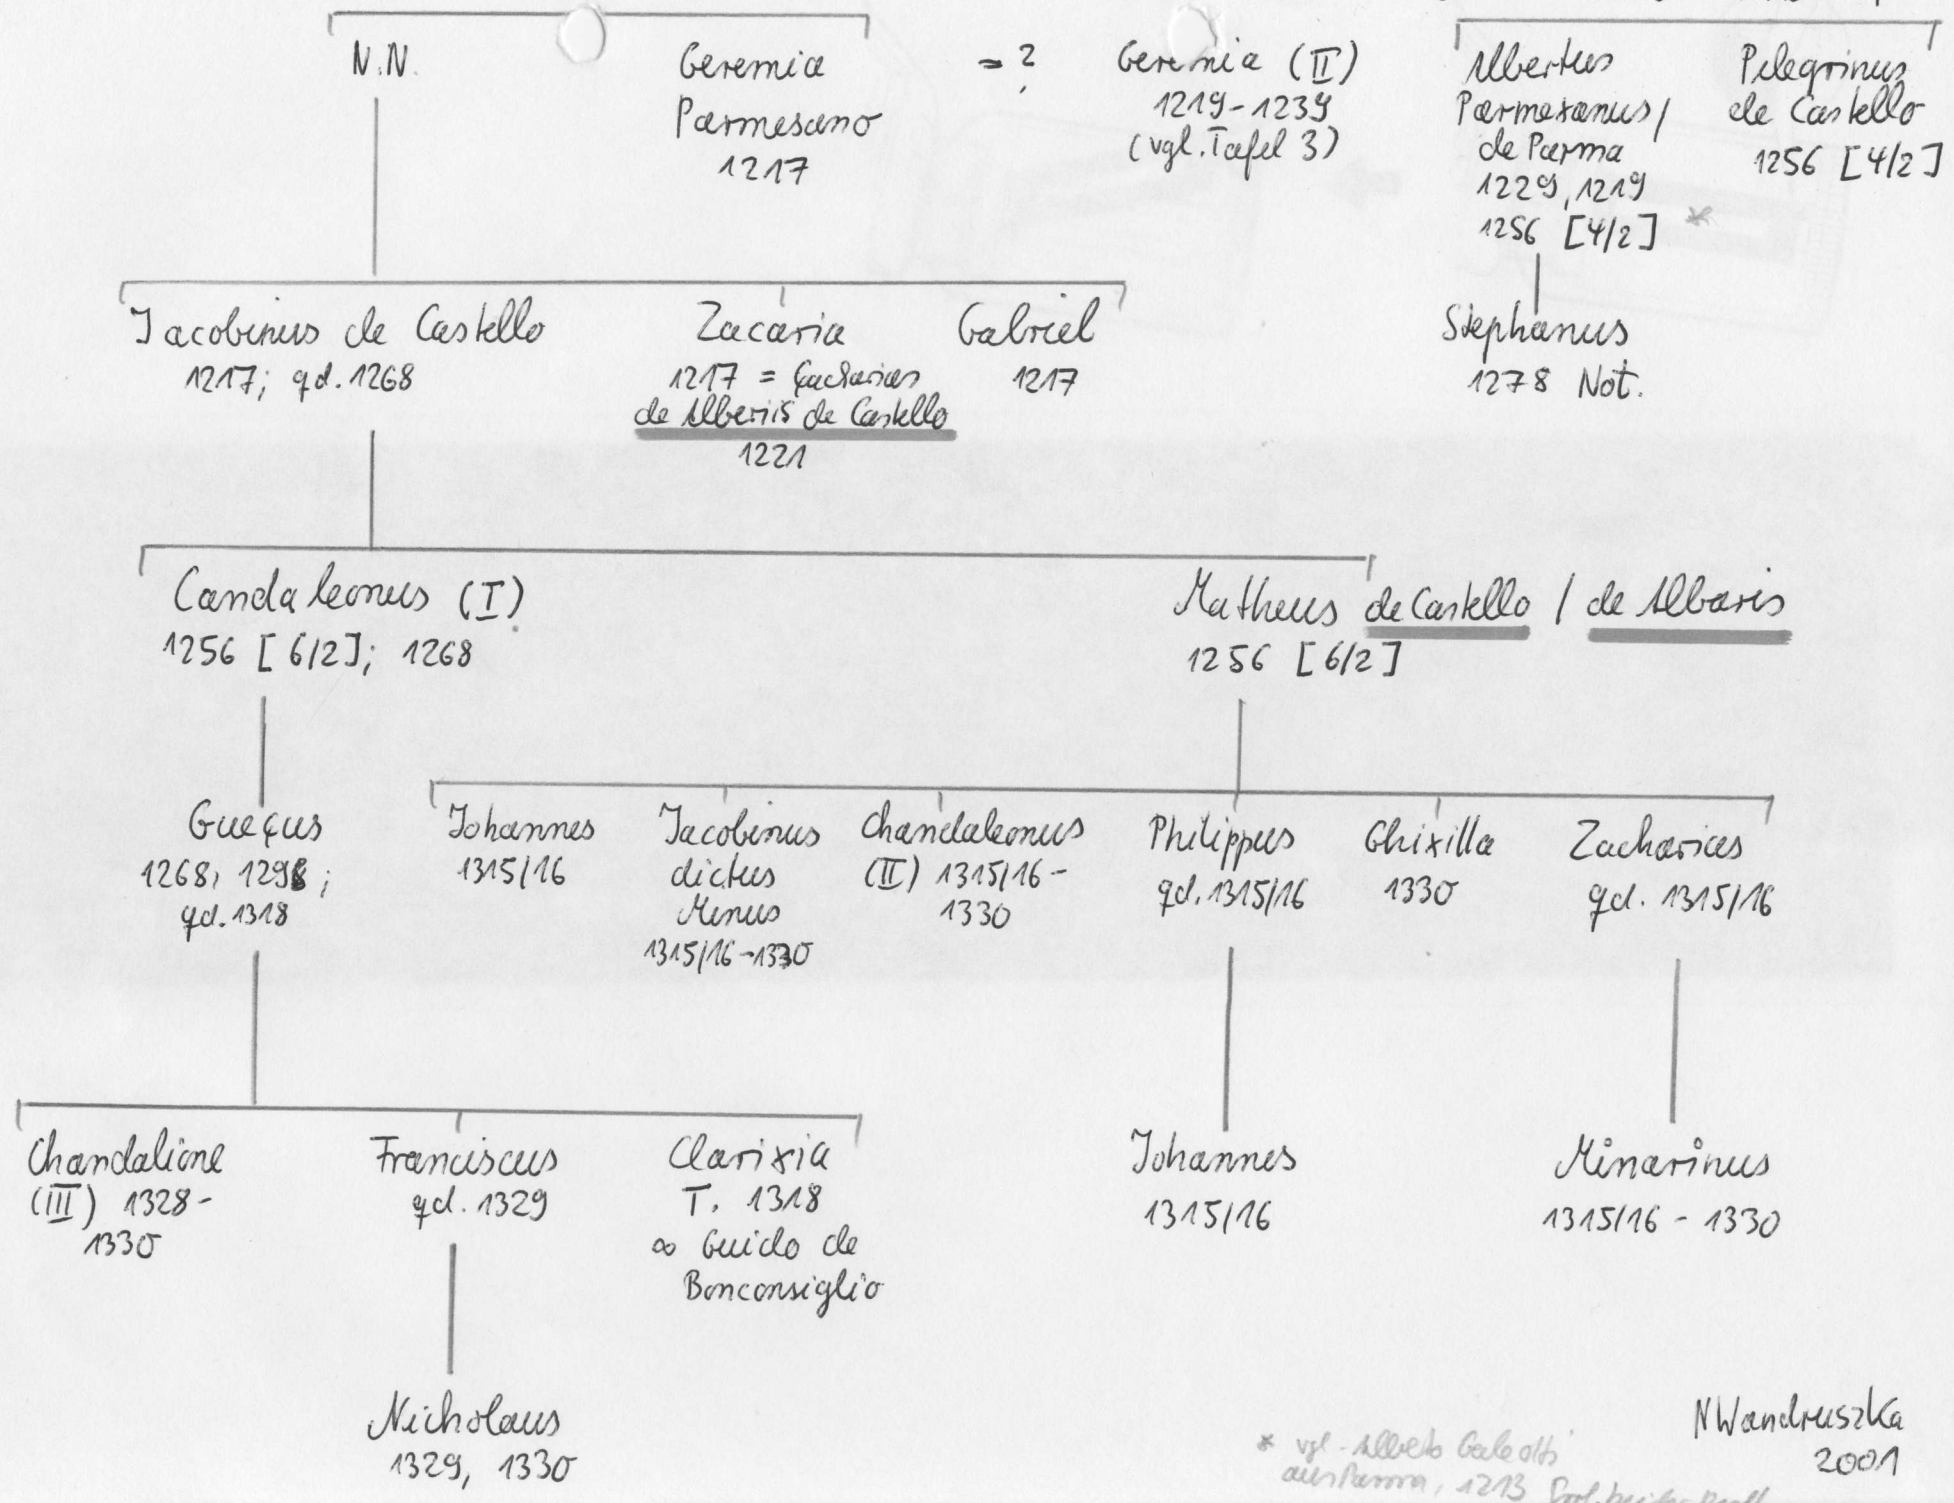 N.N.
Geremia
Parmesano
1217
= ?
Geremia (II)
1219-1239
(vgl. Tafel 3)
Albertus
Parmexanus/
de Parma
1229, 1219
1256 [4/2] *
Pelegrinus
de Castello
1256 [4/2]
Jacobinus de Castello
1217; qd. 1268
Zacaria
1217 = Çacharias
de Alberiis de Castello
1221
Gabriel
1217
Stephanus
1278 Not.
Candaleonus (I)
1256 [6/2]; 1268
Matheus de Castello / de Albaris
1256 [6/2]
Gueçus
1268, 1298;
qd. 1318
Johannes
1315/16
Jacobinus
dictus
Minus
1315/16-1330
Chandaleonus
(II) 1315/16-
1330
Philippus
qd. 1315/16
Ghixilla
1330
Zacharias
qd. 1315/16
Chandalione
(III) 1328-
1330
Franciscus
qd. 1329
Clarixia
T. 1318
∞ Guido de
Bonconsiglio
Johannes
1315/16
Minarinus
1315/16 - 1330
Nicholaus
1329, 1330
NWandruszka
2001
* vgl. Alberto Galeotti
aus Parma, 1213